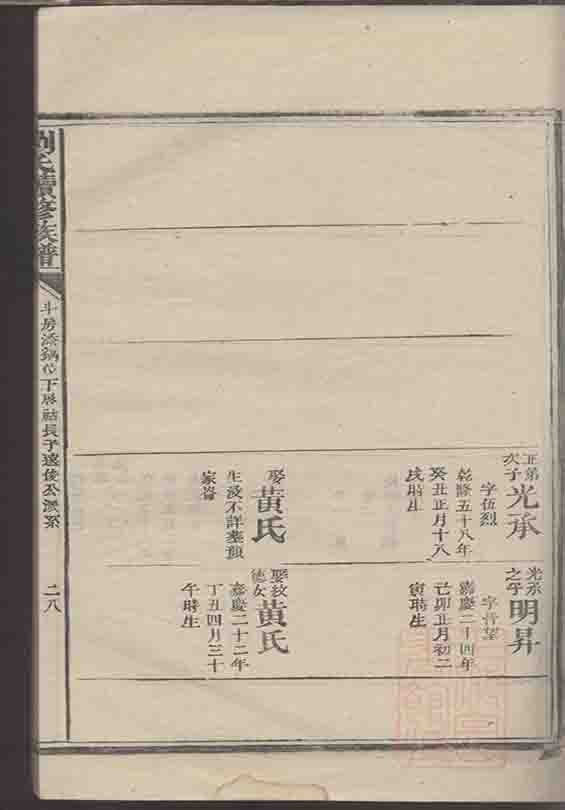 正第
次子
光承
字伍烈
乾隆五十八年
癸丑正月十八
戌時生
娶
黄氏
生没不詳塟顏
家崙
光承
之子
明昇
字晉望
嘉慶二十四年
己卯正月初二
寅時生
娶紋
德女
黄氏
嘉慶二十二年
丁丑四月三十
午時生
劉氏續修族譜
斗房添錫公下 長子遠俊公派系
二八